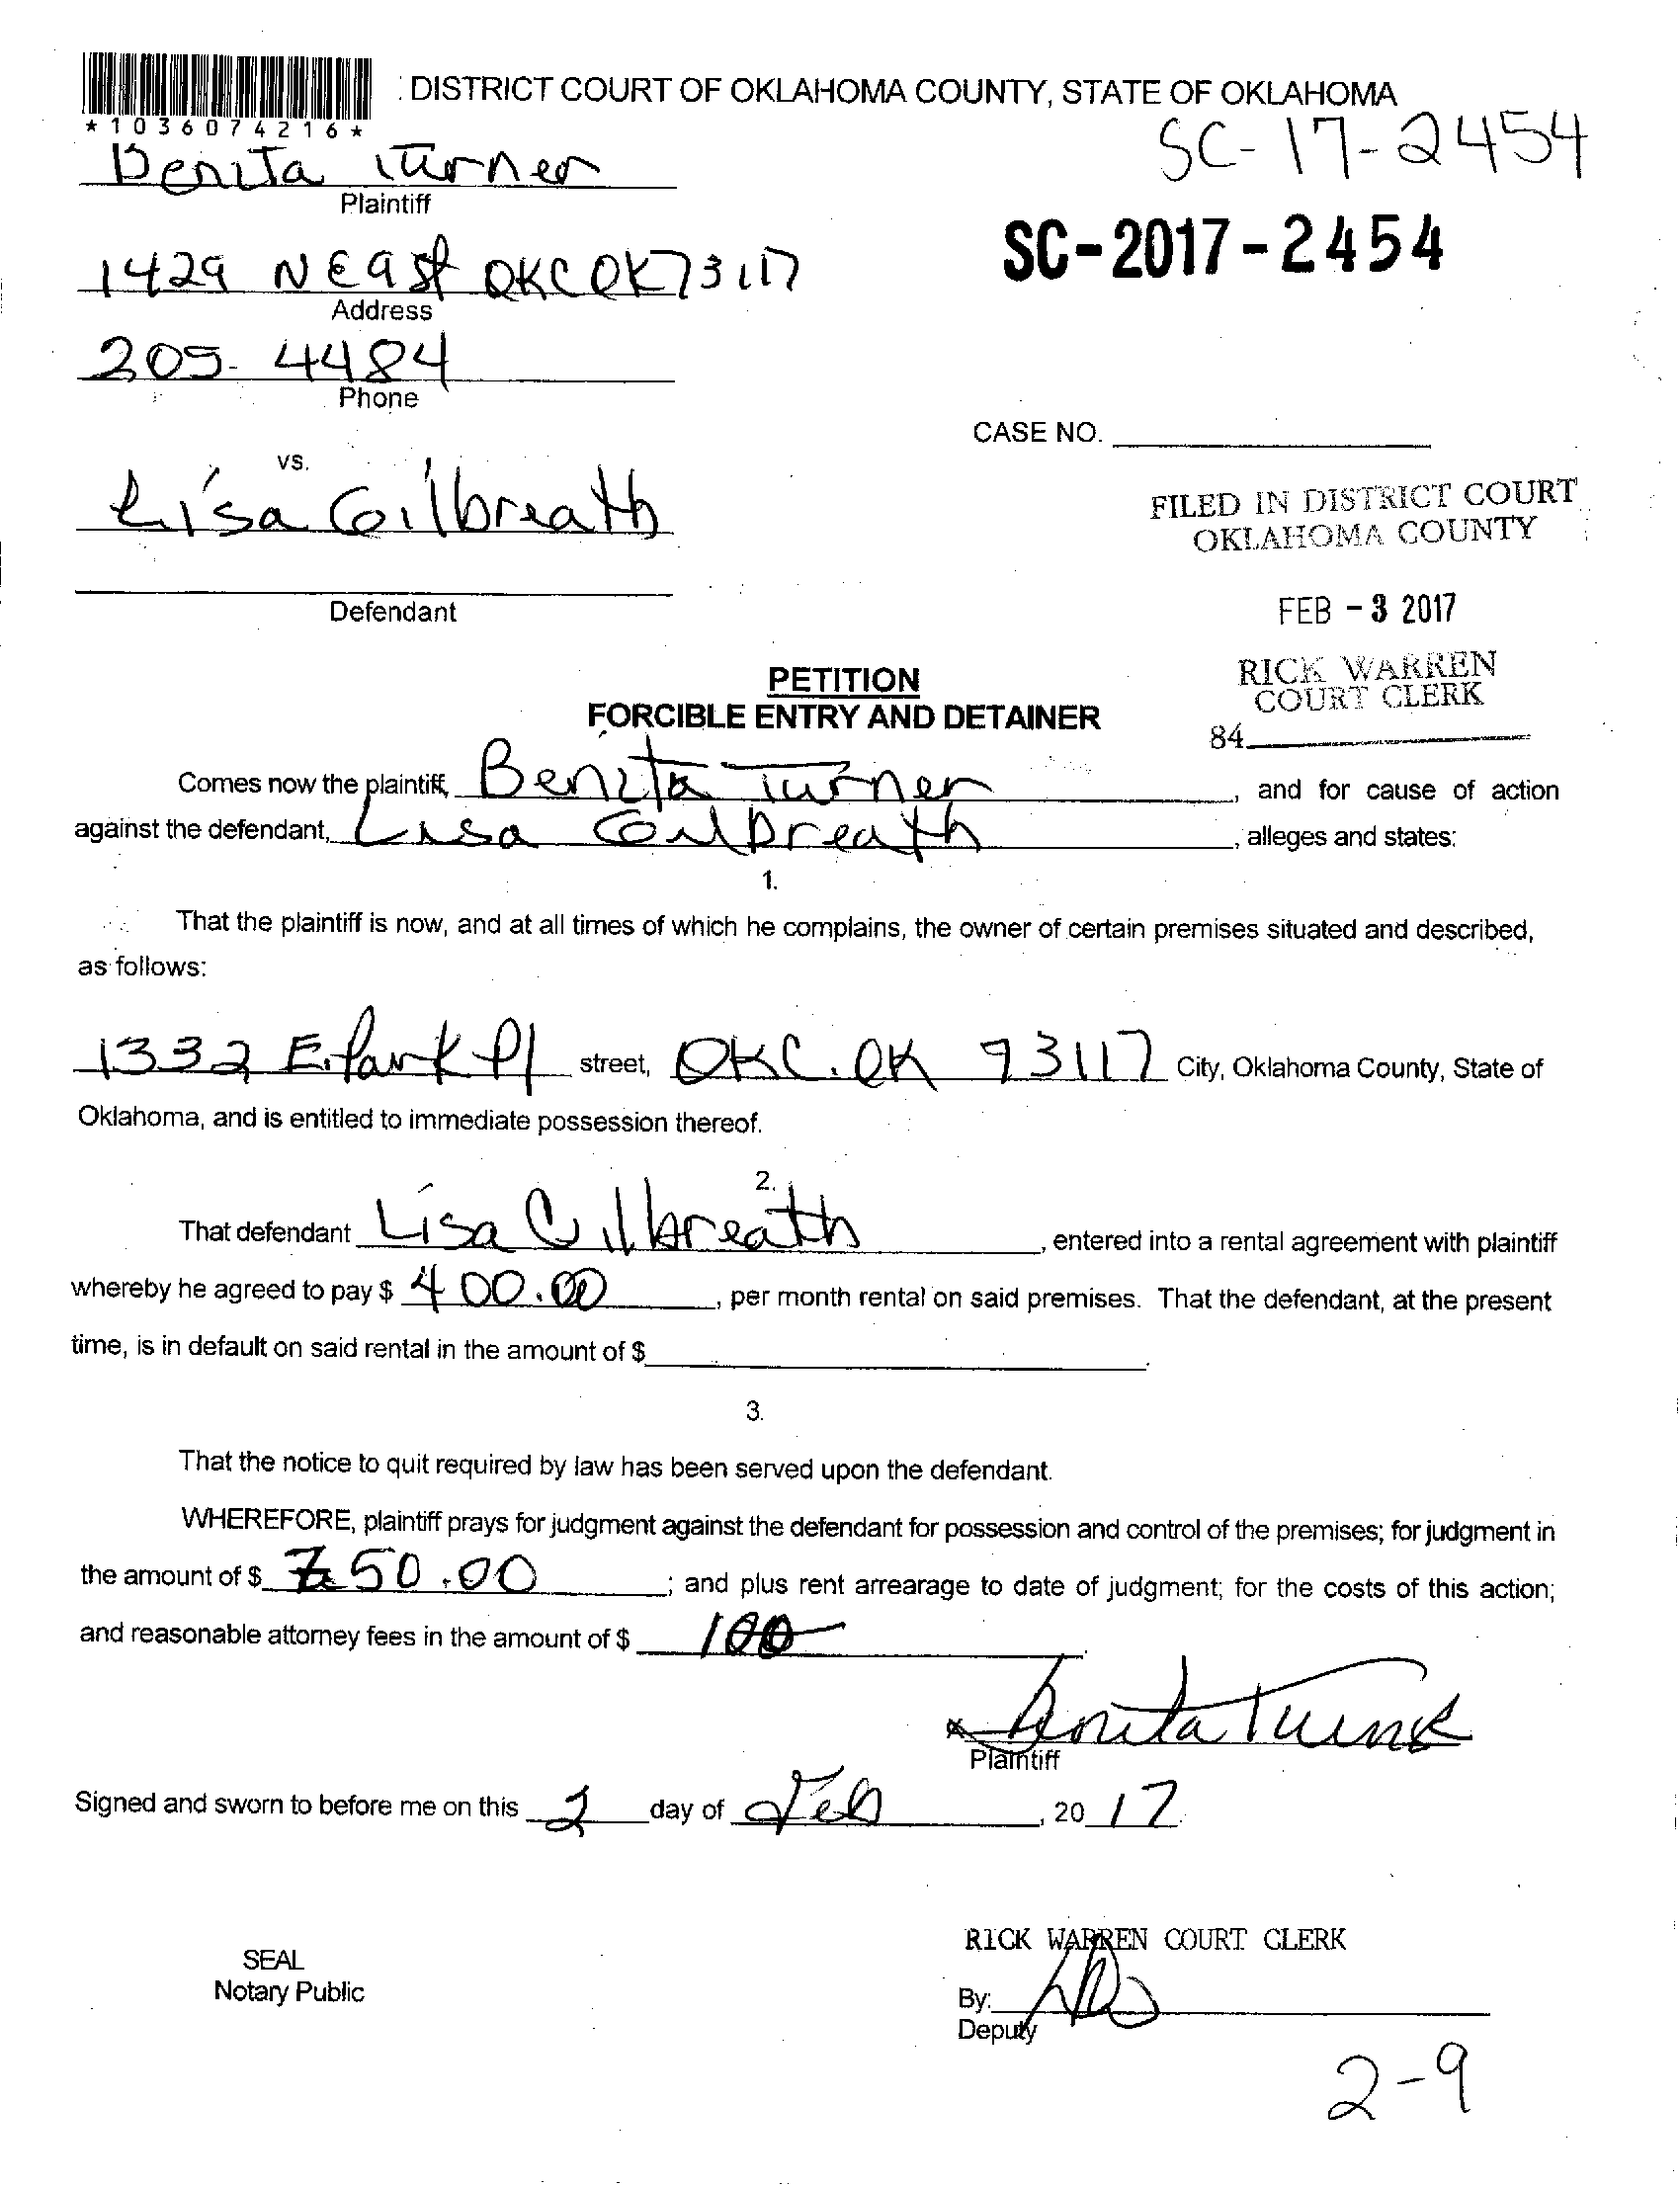 DISTRICT COURT OF OKLAHOMA COUNTY, STATE OF OKLAHOMA
*1036074216*
SC-17-2454
Benita Turner
Plaintiff
SC-2017-2454
1429 N East OKC OK 73117
Address
205-4484
Phone
CASE NO.
vs.
Lisa Gilbreath
FILED IN DISTRICT COURT
OKLAHOMA COUNTY
Defendant
FEB - 3 2017
PETITION
FORCIBLE ENTRY AND DETAINER
RICK WARREN
COURT CLERK
84
Comes now the plaintiff, Benita Turner, and for cause of action
against the defendant, Lisa Gilbreath, alleges and states:
1.
That the plaintiff is now, and at all times of which he complains, the owner of certain premises situated and described,
as follows:
1332 E. Park Pl street, OKC. OK 73117 City, Oklahoma County, State of
Oklahoma, and is entitled to immediate possession thereof.
2.
That defendant Lisa Gilbreath, entered into a rental agreement with plaintiff
whereby he agreed to pay $ 400.00, per month rental on said premises. That the defendant, at the present
time, is in default on said rental in the amount of $ .
3.
That the notice to quit required by law has been served upon the defendant.
WHEREFORE, plaintiff prays for judgment against the defendant for possession and control of the premises; for judgment in
the amount of $ 750.00; and plus rent arrearage to date of judgment; for the costs of this action;
and reasonable attorney fees in the amount of $ 100.
x Benita Turner
Plaintiff
Signed and sworn to before me on this 2 day of Feb, 2017.
RICK WARREN COURT CLERK
SEAL
Notary Public
By:
Deputy
2-9